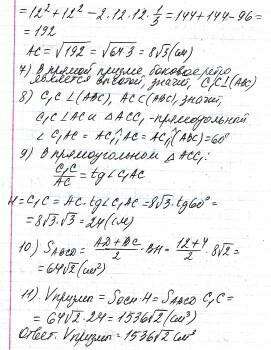 = 12² + 12² - 2·12·12·1/3 = 144 + 144 - 96 =
= 192
AC = √192 = √64·3 = 8√3 (см)
7) В прямой призме боковое ребро
является высотой, значит, C₁C⊥(ABC)
8) C₁C⊥(ABC), AC⊂(ABC), значит,
C₁C⊥AC и △ACC₁ - прямоугольный
∠C₁AC = AC₁^AC = AC₁^(ABC) = 60°
9) В прямоугольном △ACC₁:
C₁C/AC = tg∠C₁AC
H = C₁C = AC·tg∠C₁AC = 8√3·tg60° =
= 8√3·√3 = 24 (см)
10) S_ABCD = (AD + BC)/2 · BH = (12+4)/2 · 8√2 =
= 64√2 (см²)
11) Vпризм = Sосн·H = S_ABCD·C₁C =
= 64√2·24 = 1536√2 (см³)
Ответ: Vпризм = 1536√2 см³